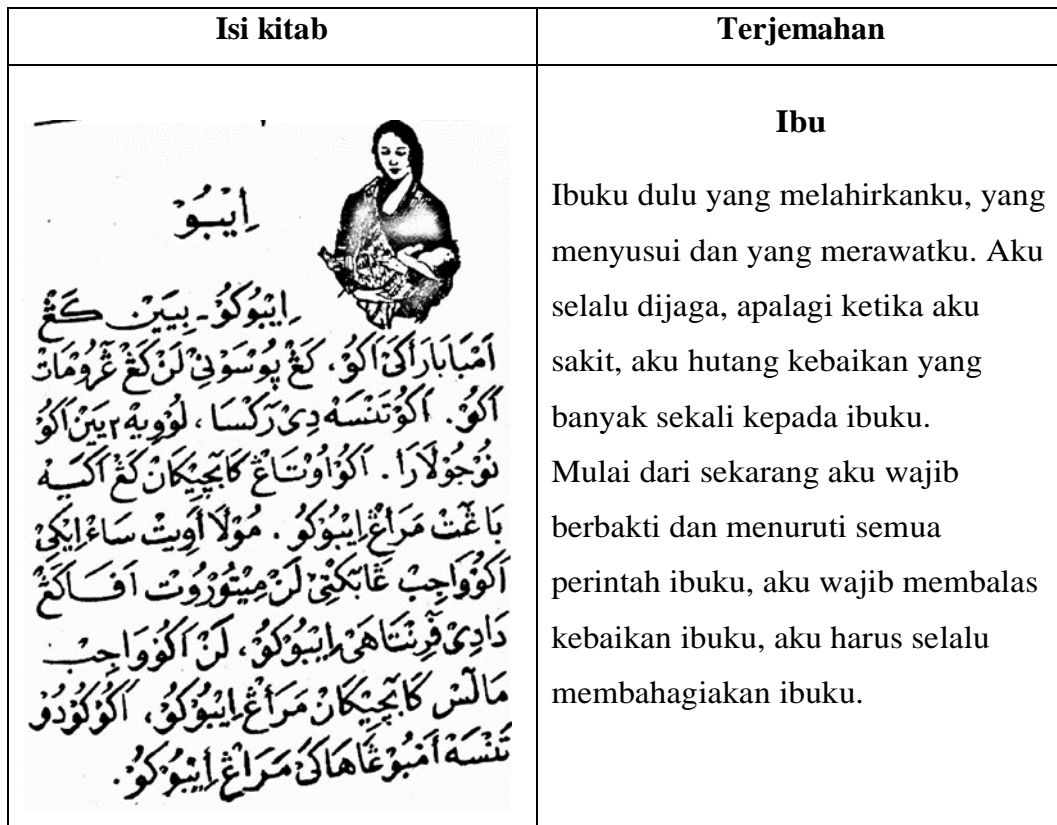 Isi kitab
Terjemahan
أَيْبُوْ
اِيْبُوْكُوْ ـ بِيَيْن كَڠْ
اَمْبَابَارَاَكَىْ اَكُوْ، كَڠْ پُوْسَوْنِىْ لَنْ كَڠْ ڠْرُوْمَاتْ
اَكُوْ. اَكُوْ تَنْسَهْ دِىْ رَكْسَا، لُوْوِيْه٢ يَيْنْ اَكُوْ
نُوْجُوْ لَارَا. اَكُوْ اُوْتَاڠْ كَابَچِيْكَانْ كَڠْ اَكَيْهْ
بَاڠَتْ مَرَاڠْ اِيْبُوْكُوْ. مُوْلَا أَوِيتْ سَاءْ اِيْكِىْ
اَكُوْ وَاجِبْ ڠَابَكْتِىْ لَنْ مِيْتُوْرُوْتْ اَفَا كَڠْ
دَادِىْ فْرِنْتَاهَىْ اِيْبُوْكُوْ، لَنْ اَكُوْ وَاجِبْ
مَالَسْ كَابَچِيْكَانْ مَرَاڠْ اِيْبُوْكُوْ، اَكُوْ كُوْدُوْ
تَنْسَهْ اَمْبُوْڠَاهَاكَىْ مَرَاڠْ اِيْبُوْكُوْ.
Ibu
Ibuku dulu yang melahirkanku, yang
menyusui dan yang merawatku. Aku
selalu dijaga, apalagi ketika aku
sakit, aku hutang kebaikan yang
banyak sekali kepada ibuku.
Mulai dari sekarang aku wajib
berbakti dan menuruti semua
perintah ibuku, aku wajib membalas
kebaikan ibuku, aku harus selalu
membahagiakan ibuku.